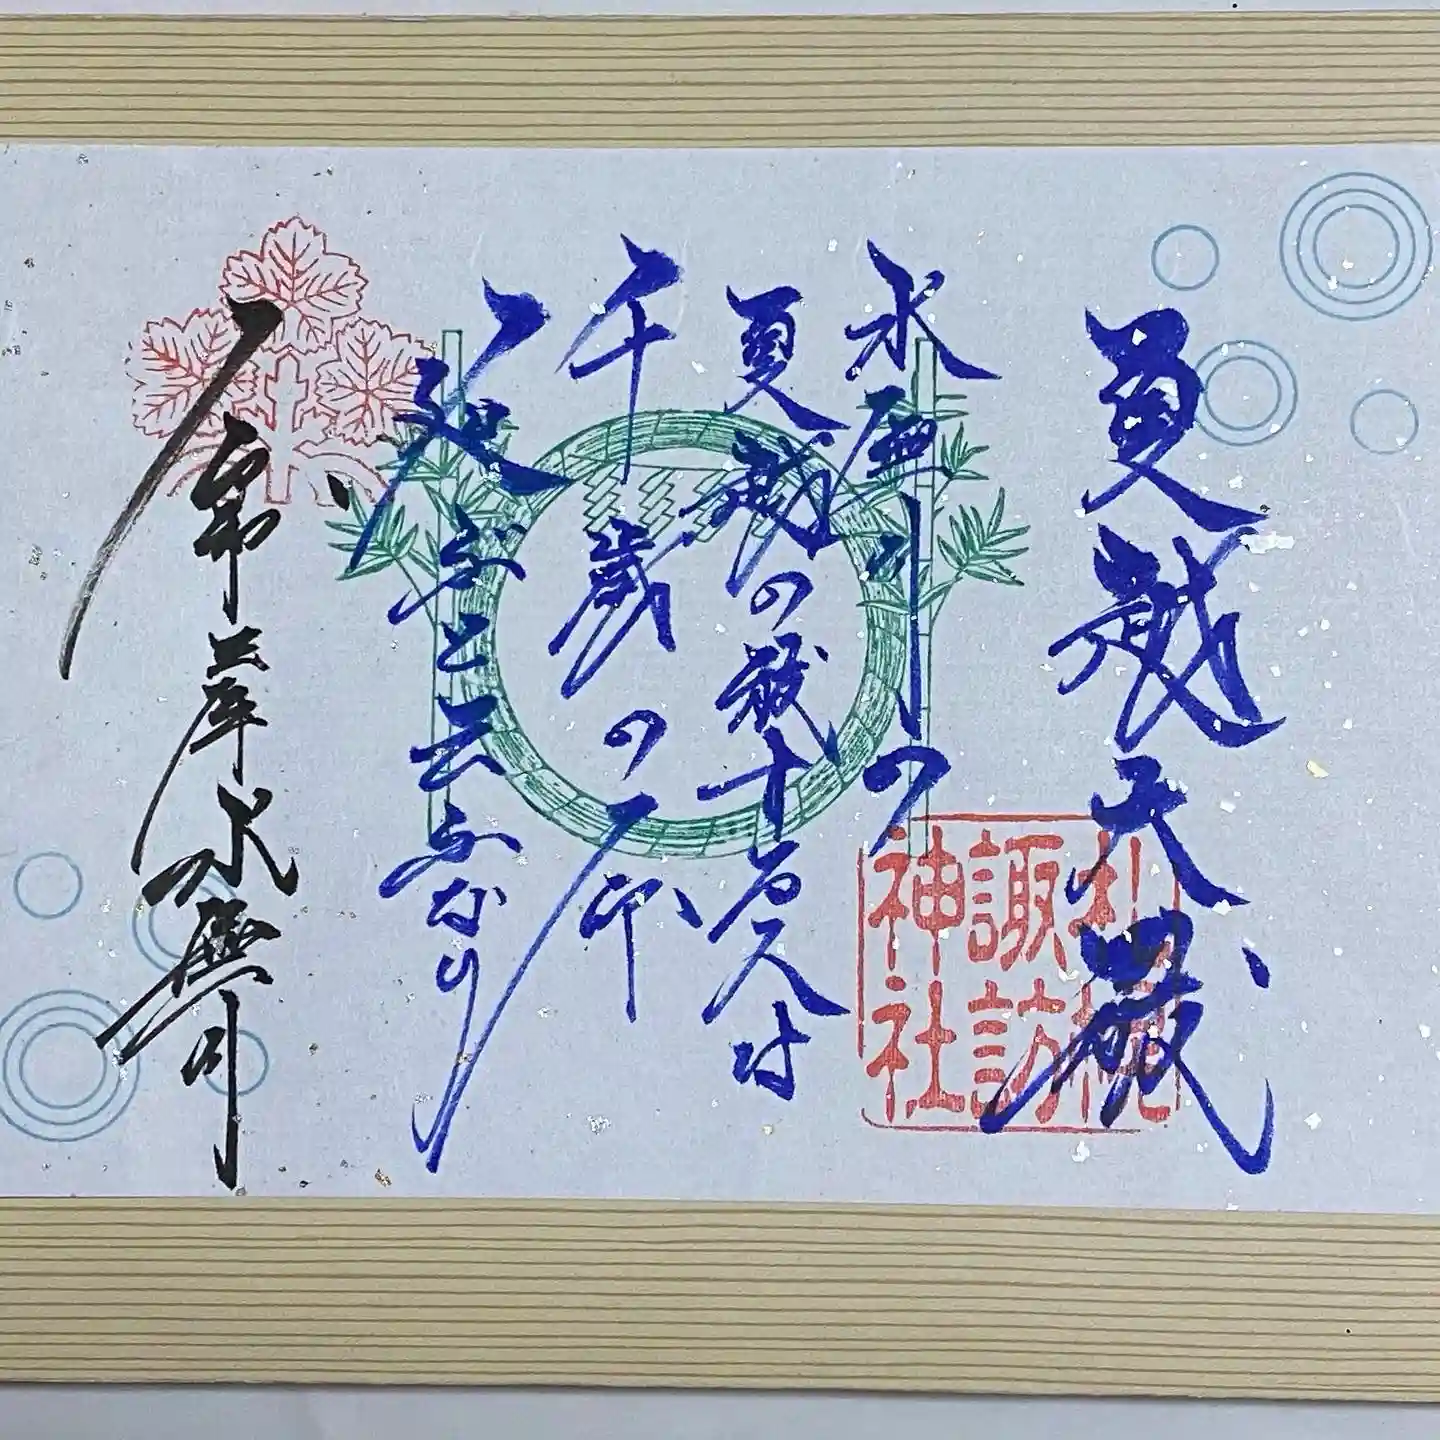 夏越大祓
水無月の
夏越の祓する人は
千歳の命
延ぶと云ふなり
令和三年水無月
札幌
諏訪
神社